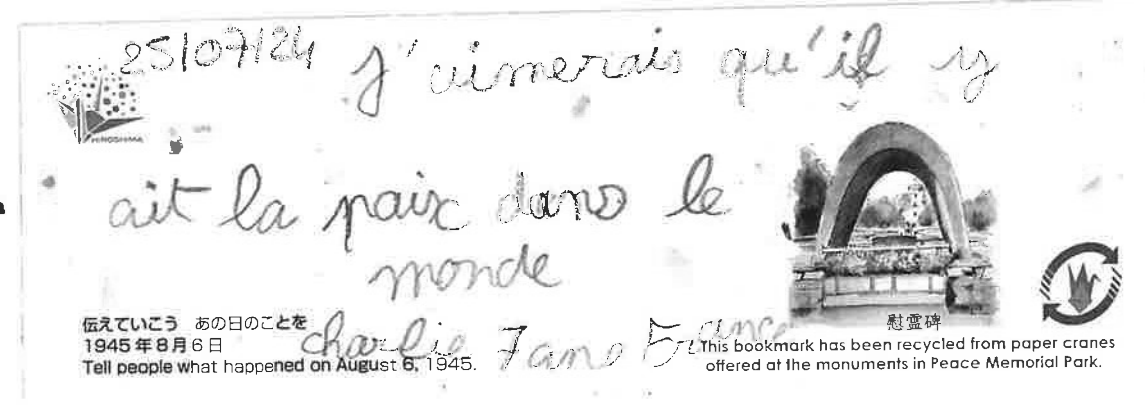 25/07/24
J'aimerais qu'il y
HIROSHIMA
ait la paix dans le
monde
Charlie 7 ans France
伝えていこう あの日のことを
1945年8月6日
Tell people what happened on August 6, 1945.
慰霊碑
This bookmark has been recycled from paper cranes
offered at the monuments in Peace Memorial Park.